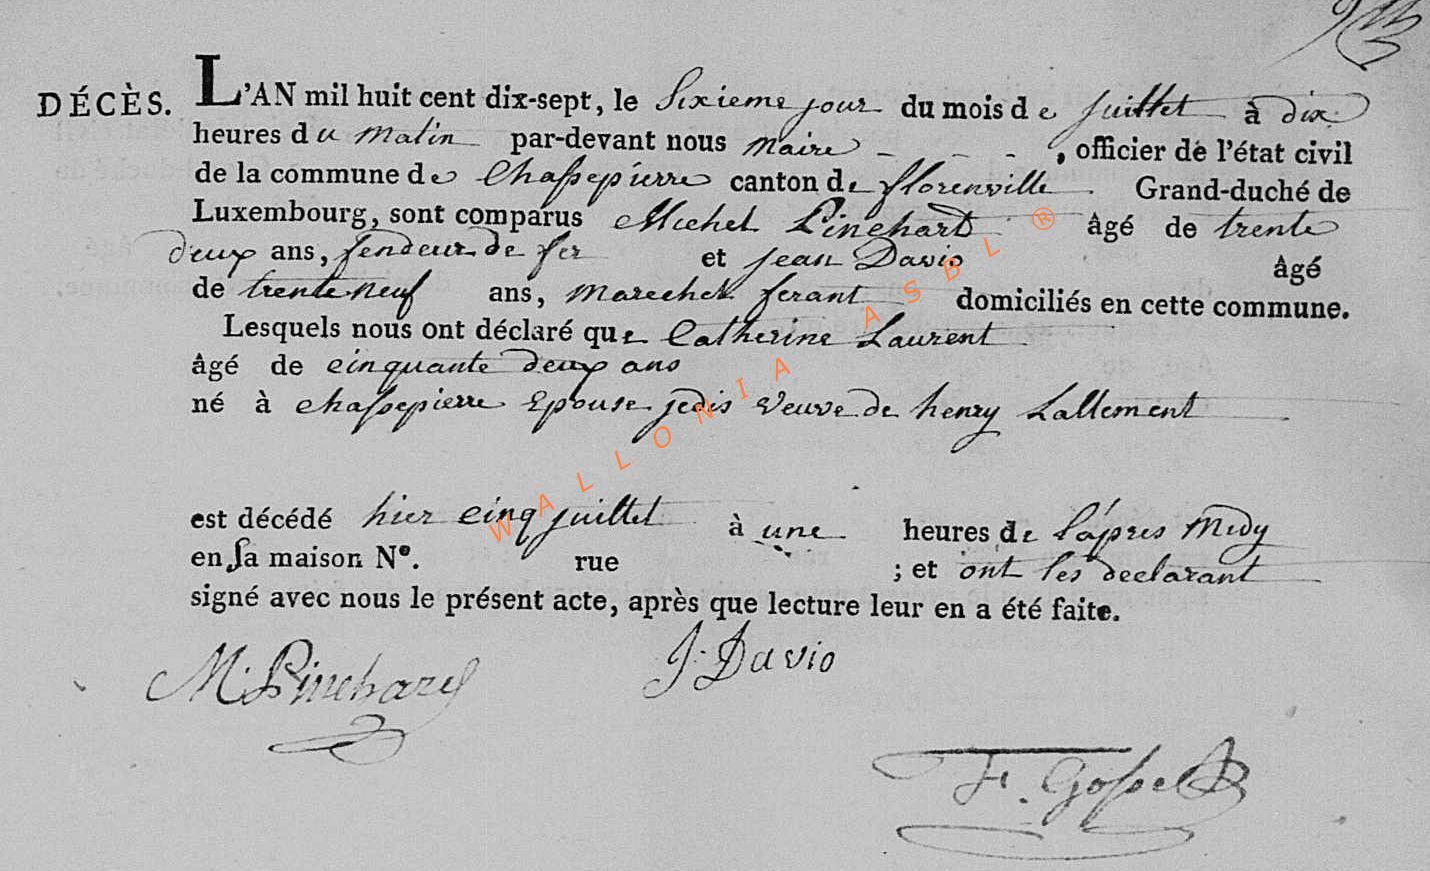 DÉCÈS. L'AN mil huit cent dix-sept, le Sixieme jour du mois de juillet à dix
heures du matin par-devant nous maire - - - , officier de l'état civil
de la commune de Chassepierre canton de florenville Grand-duché de
Luxembourg, sont comparus Michel Pinchard âgé de trente
deux ans, fendeur de fer et jean Davio âgé
de trente neuf ans, marechel ferant domiciliés en cette commune.
Lesquels nous ont déclaré que Catherine Laurent
âgé de cinquante deux ans
né à chassepierre Epouse jedis veuve de henry Lallement
est décédé hier cinq juillet à une heures de l'apres midy
en sa maison N°. rue ; et ont les declarant
signé avec nous le présent acte, après que lecture leur en a été faite.
M. Pinchard J. Davio
F. Gosset
WALLONIA ASBL ®